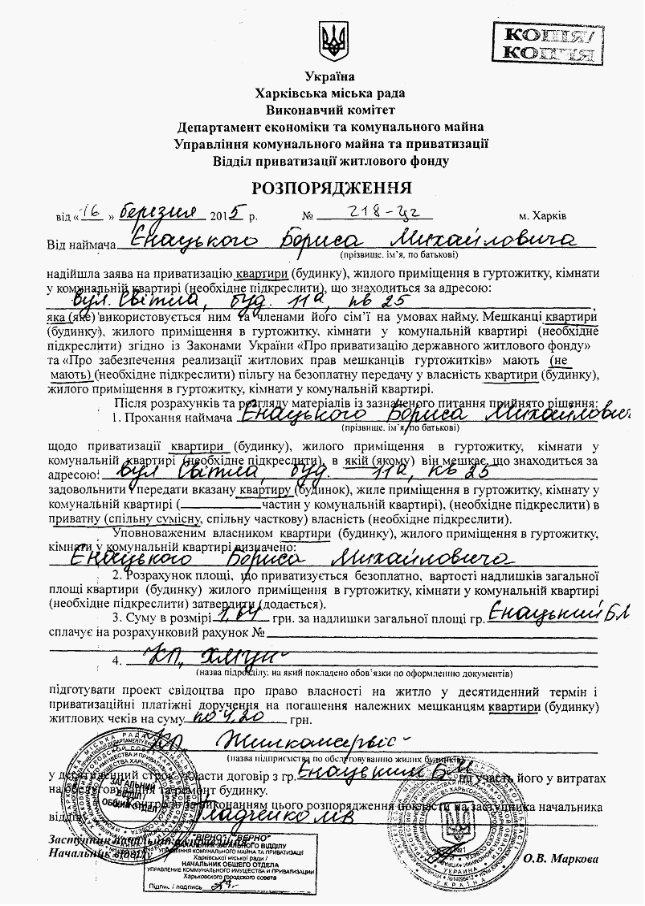 КОПІЯ/
КОП'Я
Україна
Харківська міська рада
Виконавчий комітет
Департамент економіки та комунального майна
Управління комунального майна та приватизації
Відділ приватизації житлового фонду
РОЗПОРЯДЖЕННЯ
від «16» березня 2015 р. № 218-Цг м. Харків
Від наймача Єнацького Бориса Михайловича
(прізвище, ім'я, по батькові)
надійшла заява на приватизацію квартири (будинку), жилого приміщення в гуртожитку, кімнати
у комунальній квартирі (необхідне підкреслити), що знаходиться за адресою:
вул. Світла, буд. 11а, кв 25
яка (яке) використовується ним та членами його сім'ї на умовах найму. Мешканці квартири
(будинку), жилого приміщення в гуртожитку, кімнати у комунальній квартирі (необхідне
підкреслити) згідно із Законами України «Про приватизацію державного житлового фонду»
та «Про забезпечення реалізації житлових прав мешканців гуртожитків» мають (не
мають) (необхідне підкреслити) пільгу на безоплатну передачу у власність квартири (будинку),
жилого приміщення в гуртожитку, кімнати у комунальній квартирі.
Після розрахунків та розгляду матеріалів із зазначеного питання прийнято рішення:
1. Прохання наймача Єнацького Бориса Михайлович
(прізвище, ім'я, по батькові)
щодо приватизації квартири (будинку), жилого приміщення в гуртожитку, кімнати у
комунальній квартирі (необхідне підкреслити), в якій (якому) він мешкає, що знаходиться за
адресою: вул Світла, буд. 11а, кв 25
задовольнити і передати вказану квартиру (будинок), жиле приміщення в гуртожитку, кімнату у
комунальній квартирі (____________частин у комунальній квартирі), (необхідне підкреслити) в
приватну (спільну сумісну, спільну часткову) власність (необхідне підкреслити).
Уповноваженим власником квартири (будинку), жилого приміщення в гуртожитку,
кімнати у комунальній квартирі визначено:
Єнацького Бориса Михайловича
2. Розрахунок площі, що приватизується безоплатно, вартості надлишків загальної
площі квартири (будинку) жилого приміщення в гуртожитку, кімнати у комунальній квартирі
(необхідне підкреслити) затвердити (додається).
3. Суму в розмірі грн. за надлишки загальної площі гр. Єнацький Б
сплачує на розрахунковий рахунок №
4. КП
(назва підрозділу, на який покладено обов'язки по оформленню документів)
підготувати проект свідоцтва про право власності на житло у десятиденний термін і
приватизаційні платіжні доручення на погашення належних мешканцям квартири (будинку)
житлових чеків на суму по 4,20 грн.
КП Жилкомсервіс
(назва підприємства по обслуговуванню жилих будинків)
у десятиденний строк укласти договір з гр. Єнацьким Б.М на участь його у витратах
на обслуговування та ремонт будинку.
Контроль за виконанням цього розпорядження покласти на заступника начальника
відділу
Заступник начальника
Начальник відділу
О.В. Маркова
ЗАГАЛЬНИЙ
ВІДДІЛ
ОБЩИЙ ОТДЕЛ
"ВІРНО"/ "ВЕРНО"
НАЧАЛЬНИК ЗАГАЛЬНОГО ВІДДІЛУ
УПРАВЛІННЯ КОМУНАЛЬНОГО МАЙНА ТА ПРИВАТИЗАЦІЇ
Харківської міської ради /
НАЧАЛЬНИК ОБЩЕГО ОТДЕЛА
УПРАВЛЕНИЕ КОММУНАЛЬНОГО ИМУЩЕСТВА И ПРИВАТИЗАЦИИ
Харьковского городского совета
Підпис / подпись